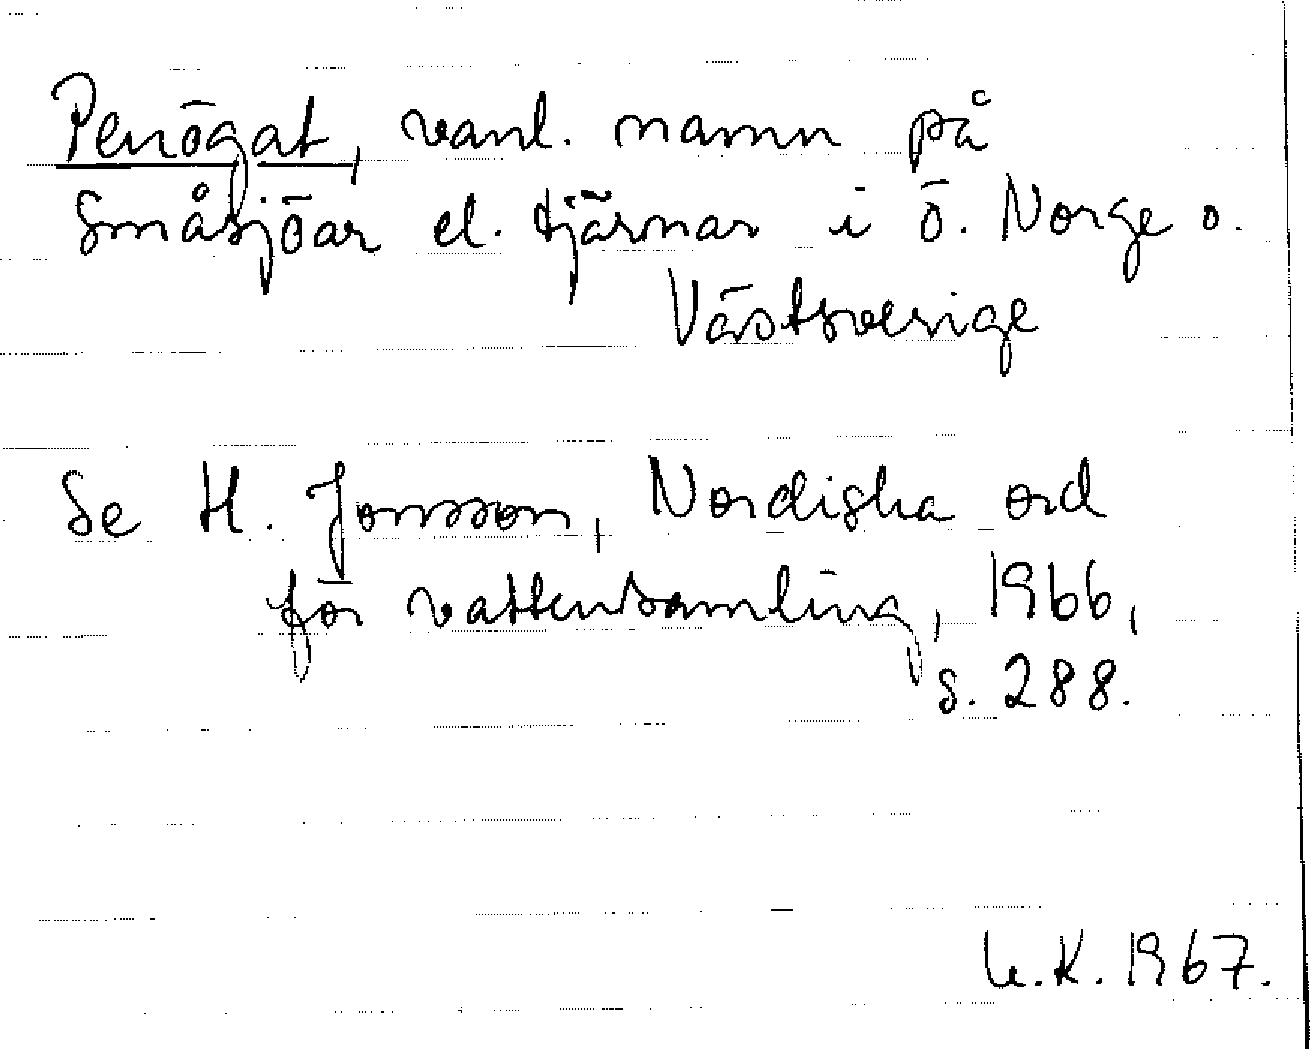 Penögat, vanl. namn på
småsjöar el. tjärnar i ö. Norge o.
Västsverige
Se H. Jonsson, Nordiska ord
för vattensamling, 1966,
s. 288.
U.K. 1967.